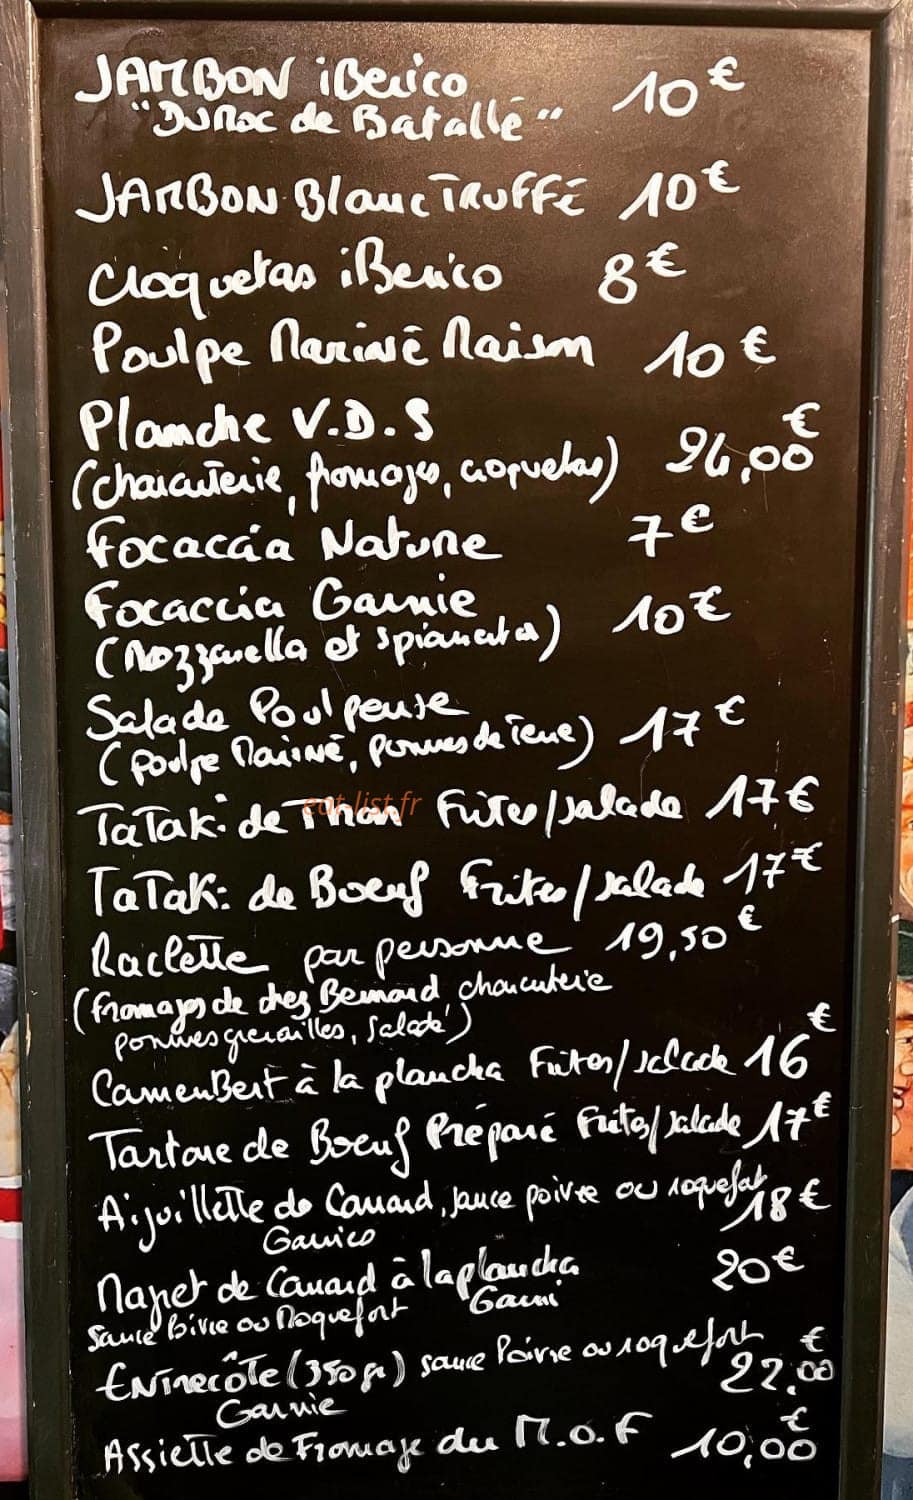 JAMBON iBerico 10€
"Duroc de Batallé"
JAMBON Blanc TRuffé 10€
Cloquetas iBerico 8€
Poulpe Mariné Maison 10€
Planche V.D.S
(charcuterie, fromages, croquetas) 24,00€
Focaccia Nature 7€
Focaccia Garnie 10€
(Mozzarella et spianatas)
Salade Poulpeuse
(Poulpe Mariné, pommes de Terre) 17€
TaTaki de Thon Frites/salade 17€
eat-list.fr
TaTaki de Boeuf Frites/salade 17€
Raclette par personne 19,50€
(fromages de chez Bernard charcuterie
pommes grenailles, Salade)
CamenBert à la plancha Frites/salade 16€
Tartare de Boeuf Préparé Frites/salade 17€
Aiguillette de Canard, sauce poivre ou roquefort 18€
Garnies
Magret de Canard à la plancha 20€
Sauce Poivre ou Roquefort Garni
Entrecôte (350gr) sauce Poivre ou roquefort 22,00€
Garnie
Assiette de Fromage du M.O.F 10,00€